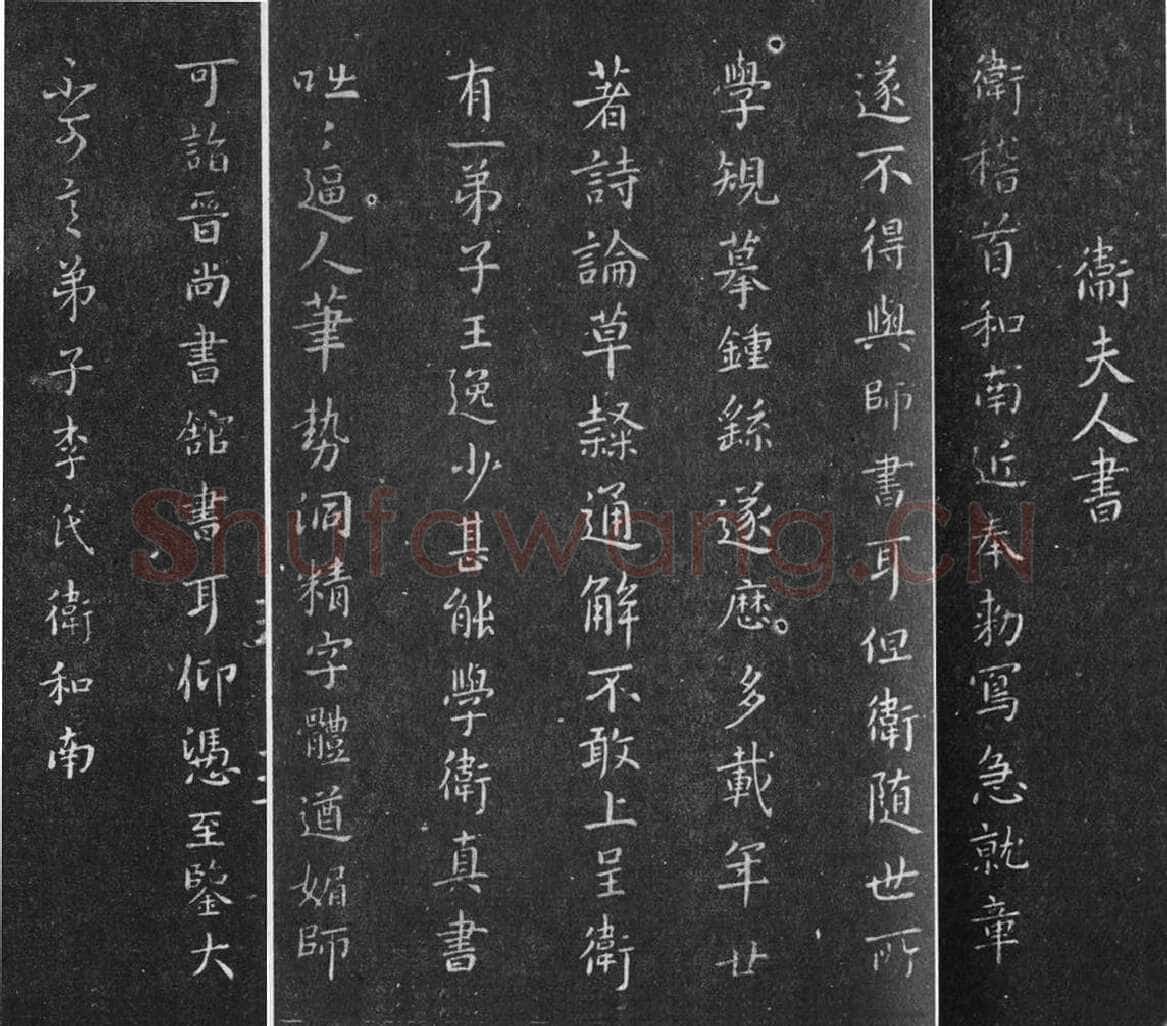 衛夫人書
衛稽首和南近奉勑寫急就章
遂不得與師書耳但衛隨世所
學規摹鍾繇遂歷多載年廿
著詩論草隸通解不敢上呈衛
有一弟子王逸少甚能學衛真書
咄〻逼人筆勢洞精字體遒媚師
可詣晉尚書館書耳仰憑至鑒大
不可言弟子李氏衛和南
Shufawang.CN